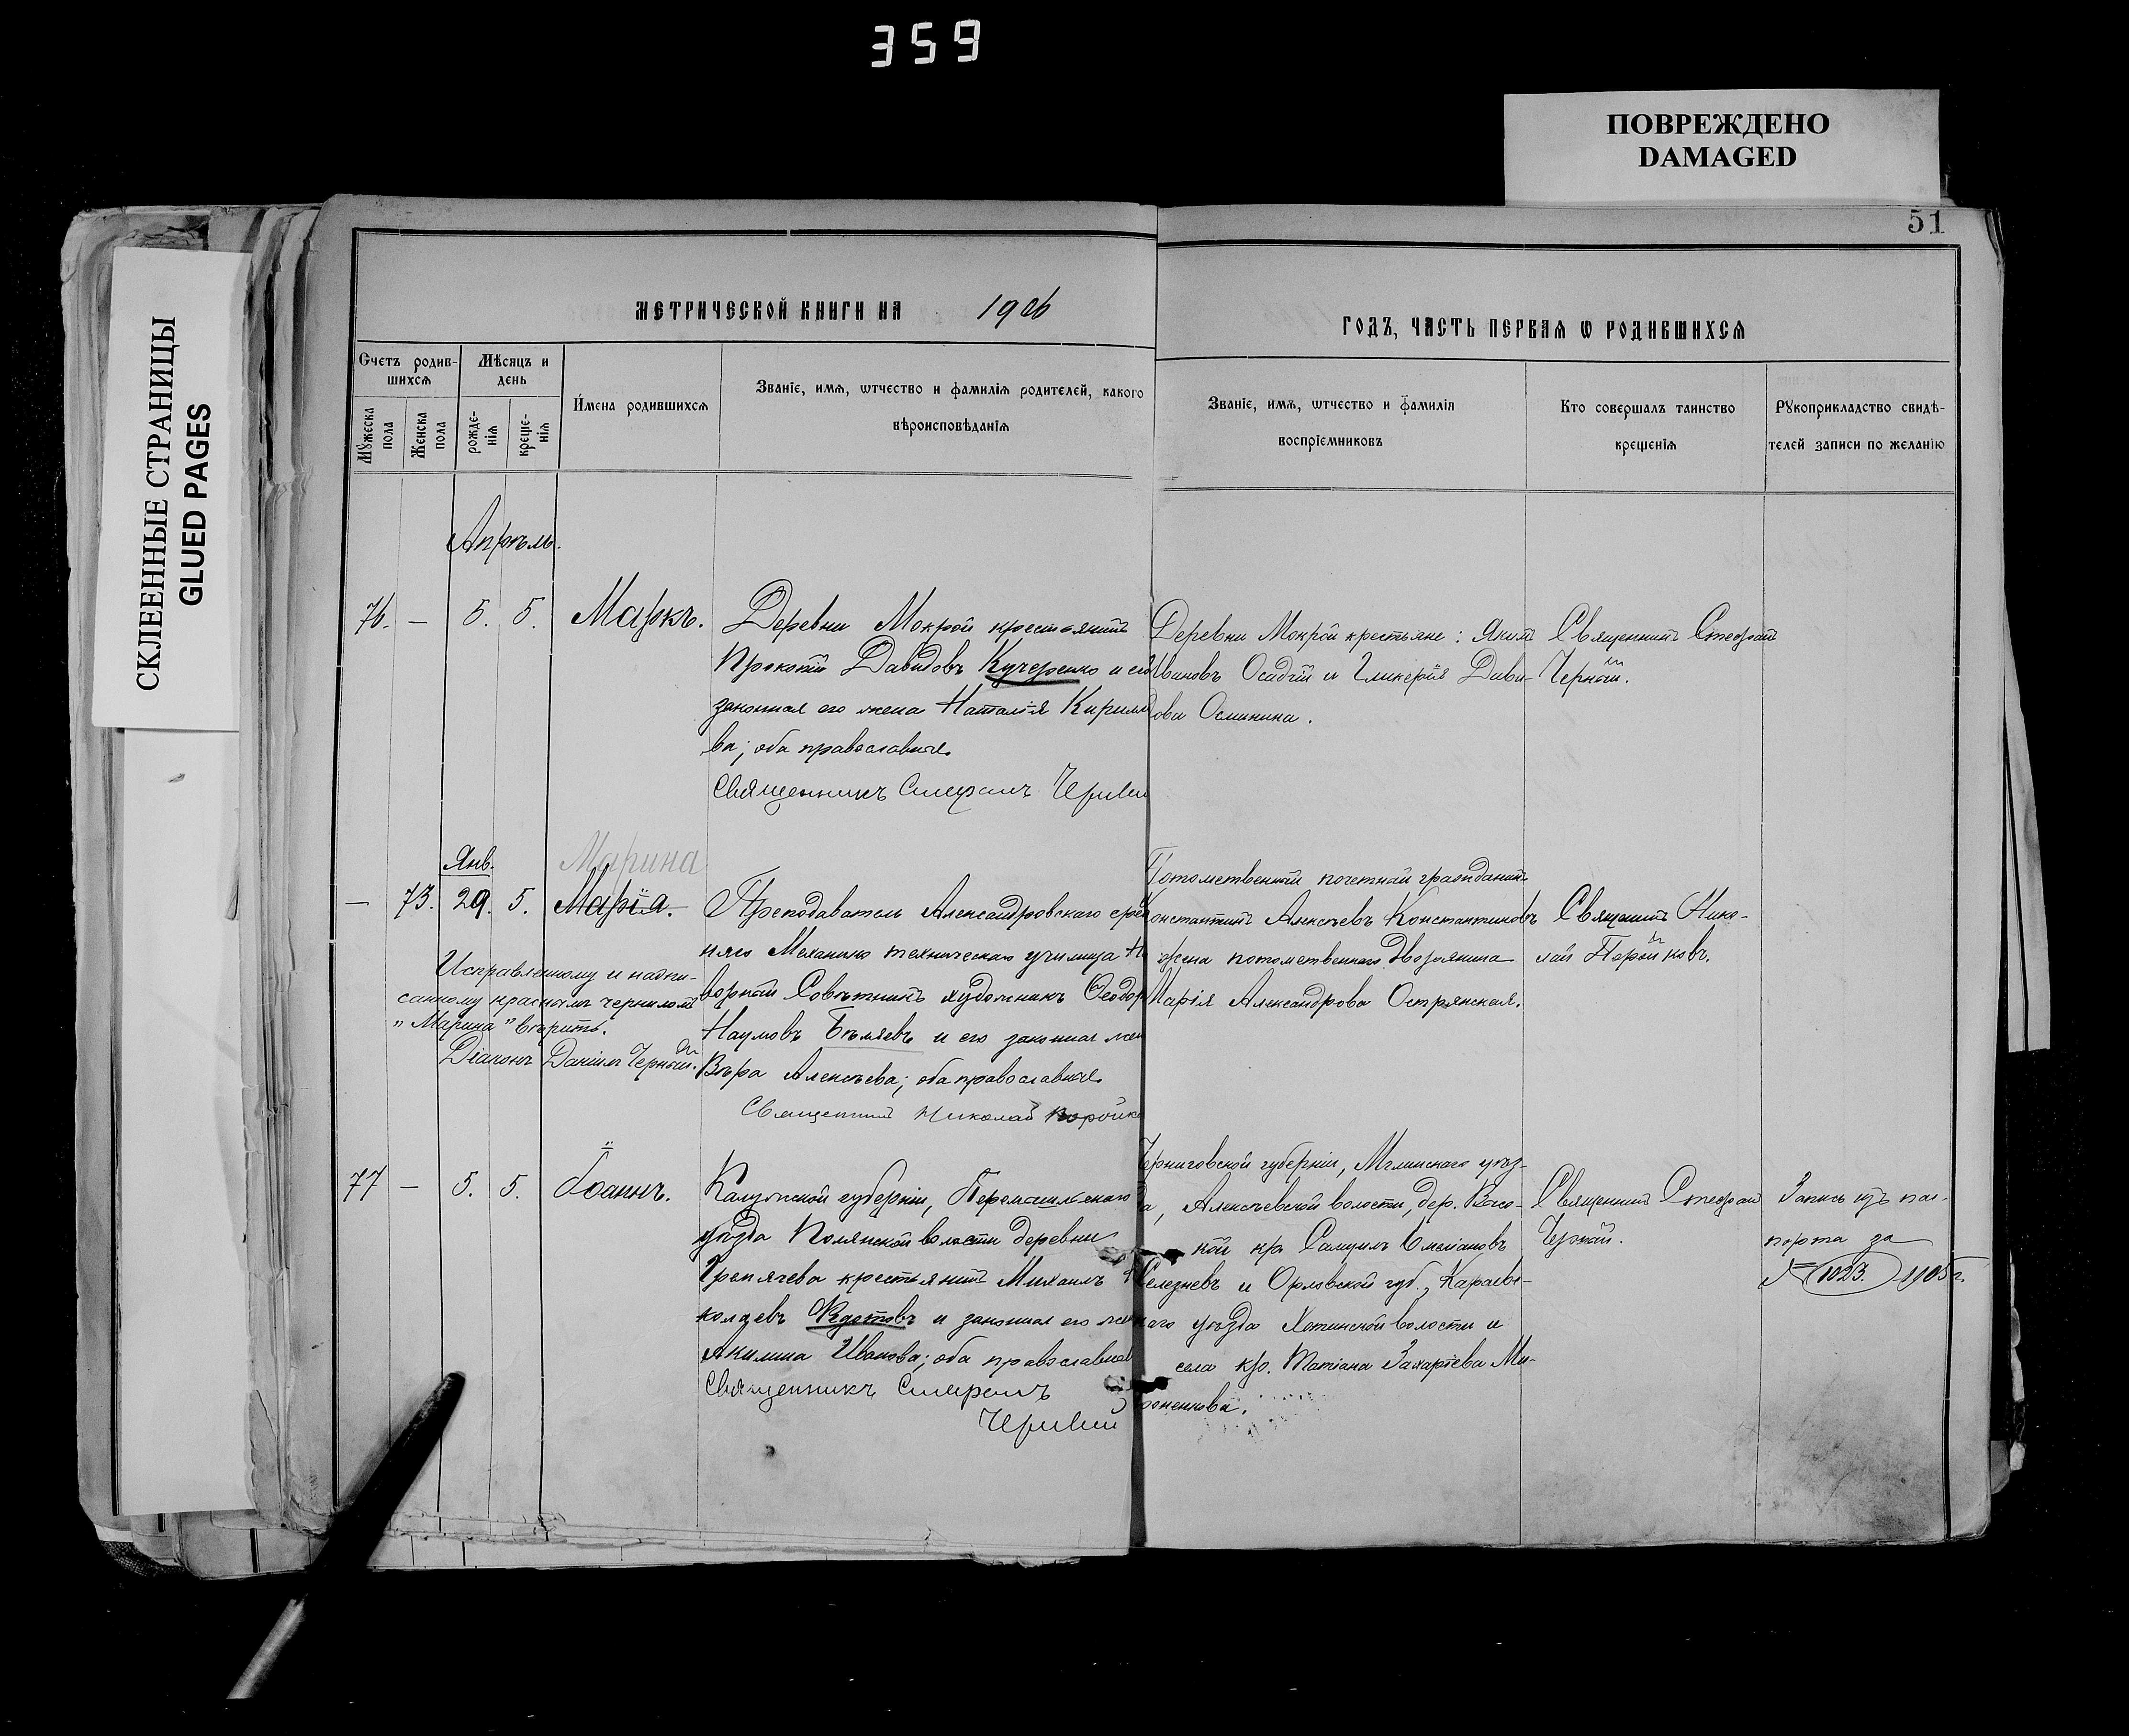 359
ПОВРЕЖДЕНО
DAMAGED
СКЛЕЕННЫЕ СТРАНИЦЫ
GLUED PAGES
51
МЕТРИЧЕСКОЙ КНИГИ НА 1906
ГОДЪ, ЧАСТЬ ПЕРВАЯ Ѡ РОДИВШИХСЯ
Счетъ родив-
шихсѧ
Мѣсяцъ и
день
Мꙋжеска
пола
Женска
пола
рожде-
нїѧ
креще-
нїѧ
Имена родившихсѧ
Званїе, имѧ, ѡтчество и фамилїѧ родителей, какого
вѣроисповѣданїѧ
Званїе, имѧ, ѡтчество и фамилїѧ
воспрїемниковъ
Кто совершалъ таинство
крещенїѧ
Рꙋкоприкладство свидѣ-
телей записи по желанїю
Апрѣль.
76. — 5. 5. Маркъ.
Деревни Мокрой крестьянинъ
Прокопій Давидовъ Кучеренко и его
законная его жена Наталія Кирилло
ва; оба православные.
Священникъ Стефанъ Черный
Деревни Мокрой крестьяне: Якимъ
Ивановъ Осадчій и Гликерія Дави-
дова Осминина.
Священникъ Стефанъ
Черный.
Янв.
Марина
— 73. 29. 5. Марія.
Исправленному и надпи-
санному красными чернилами
"Марина" вѣрить.
Діаконъ Даніилъ Черный.
Преподаватель Александровскаго сред
няго Механико техническаго училища На
ворный Совѣтникъ художникъ Ѳеодоръ
Наумовъ Бѣляевъ и его законная жена
Вѣра Алексѣева; оба православные.
Священникъ Николай Поройко
Потомственный почетный гражданинъ
Константинъ Алексѣевъ Константиновъ
жена потомственнаго Дворянина
Марія Александрова Острянская.
Священникъ Нико-
лай Поройковъ.
77 — 5. 5. Іоаннъ.
Калужской губерніи, Перемышльскаго
уѣзда Полянской волости деревни
крестьянинъ Михаилъ
и законная его жена
Акилина Иванова; оба православные
Священникъ Стефанъ
Черный
Черниговской губерніи, Мглинскаго уѣз-
да, Алексѣевской волости, дер.
кой кр. Самуилъ Емеліановъ
Селезневъ и Орловской губ., Карачев-
скаго уѣзда Хотинской волости и
села кр. Татіана Захаріева Ми-
роненкова.
Священникъ Стефанъ
Черный.
Запись изъ пас-
порта за
№ 1023. 1905 г.